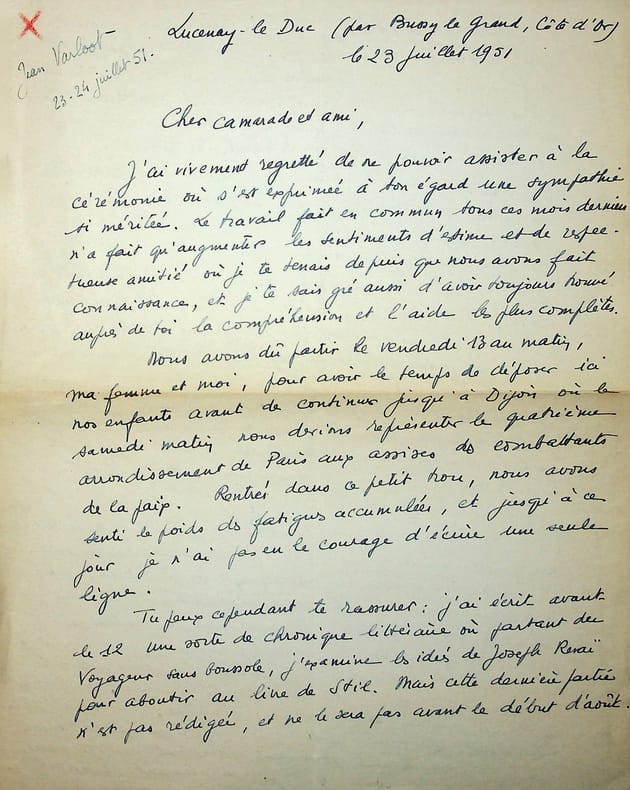 Jean Varloot -
23-24 juillet 51.
Lucenay-le Duc (par Bussy le Grand, Côte d'Or)
le 23 juillet 1951
Cher camarade et ami,
J'ai vivement regretté de ne pouvoir assister à la
cérémonie où s'est exprimée à ton égard une sympathie
si méritée. Le travail fait en commun tous ces mois derniers
n'a fait qu'augmenter les sentiments d'estime et de respec-
tueuse amitié où je te tenais depuis que nous avons fait
connaissance, et je te sais gré aussi d'avoir toujours trouvé
auprès de toi la compréhension et l'aide les plus complètes.
Nous avons dû partir le vendredi 13 au matin,
ma femme et moi, pour avoir le temps de déposer ici
nos enfants avant de continuer jusqu'à Dijon où le
samedi matin nous devions représenter le quatrième
arrondissement de Paris aux assises des combattants
de la paix. Rentrés dans ce petit trou, nous avons
senti le poids des fatigues accumulées, et jusqu'à ce
jour je n'ai pas eu le courage d'écrire une seule
ligne.
Tu peux cependant te rassurer : j'ai écrit avant
le 12 une sorte de chronique littéraire où partant du
Voyageur sans boussole, j'examine les idées de Joseph Revaï
pour aboutir au livre de Stil. Mais cette dernière partie
n'est pas rédigée, et ne le sera pas avant le début d'août.